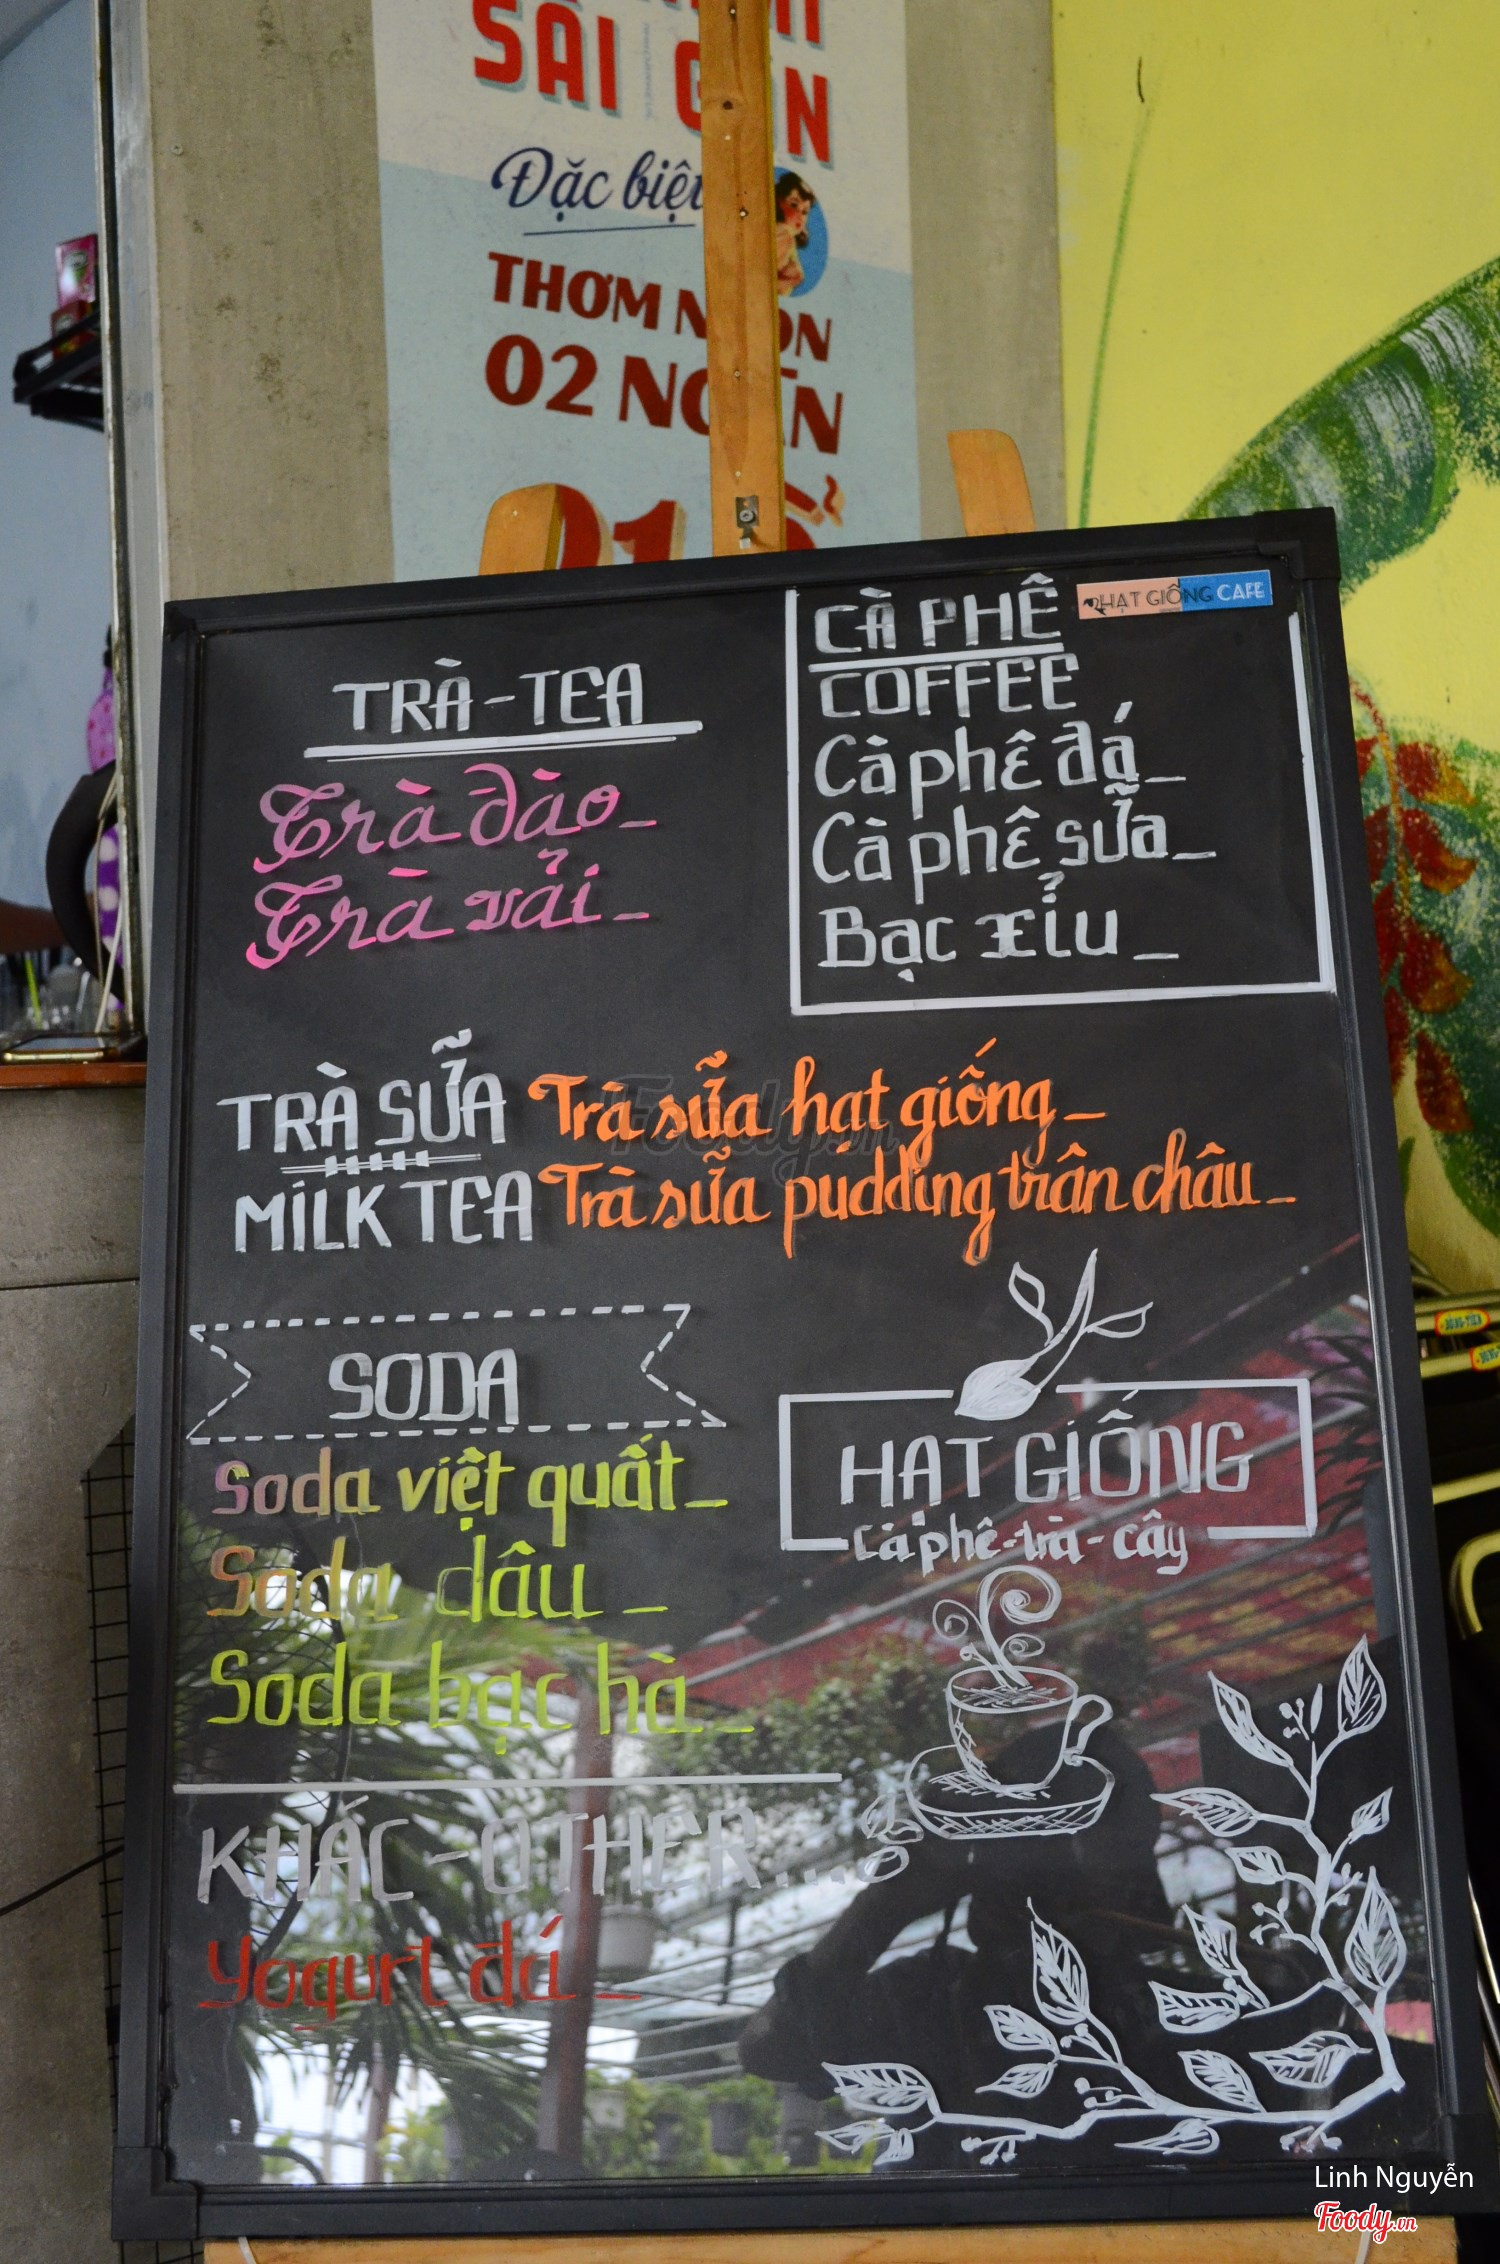 SAI GÒN
Đặc biệt
THƠM NGON
02 NGÀN
TRÀ - TEA
Trà đào
Trà vải
HẠT GIỐNG CAFE
CÀ PHÊ
COFFEE
Cà phê đá
Cà phê sữa
Bạc xỉu
TRÀ SỮA
MILK TEA
Trà sữa hạt giống
Trà sữa pudding trân châu
Foody.vn
SODA
Soda việt quất
Soda dâu
Soda bạc hà
HẠT GIỐNG
Cà phê - trà - cây
KHÁC - OTHER....
Yogurt đá
Linh Nguyễn
Foody.vn